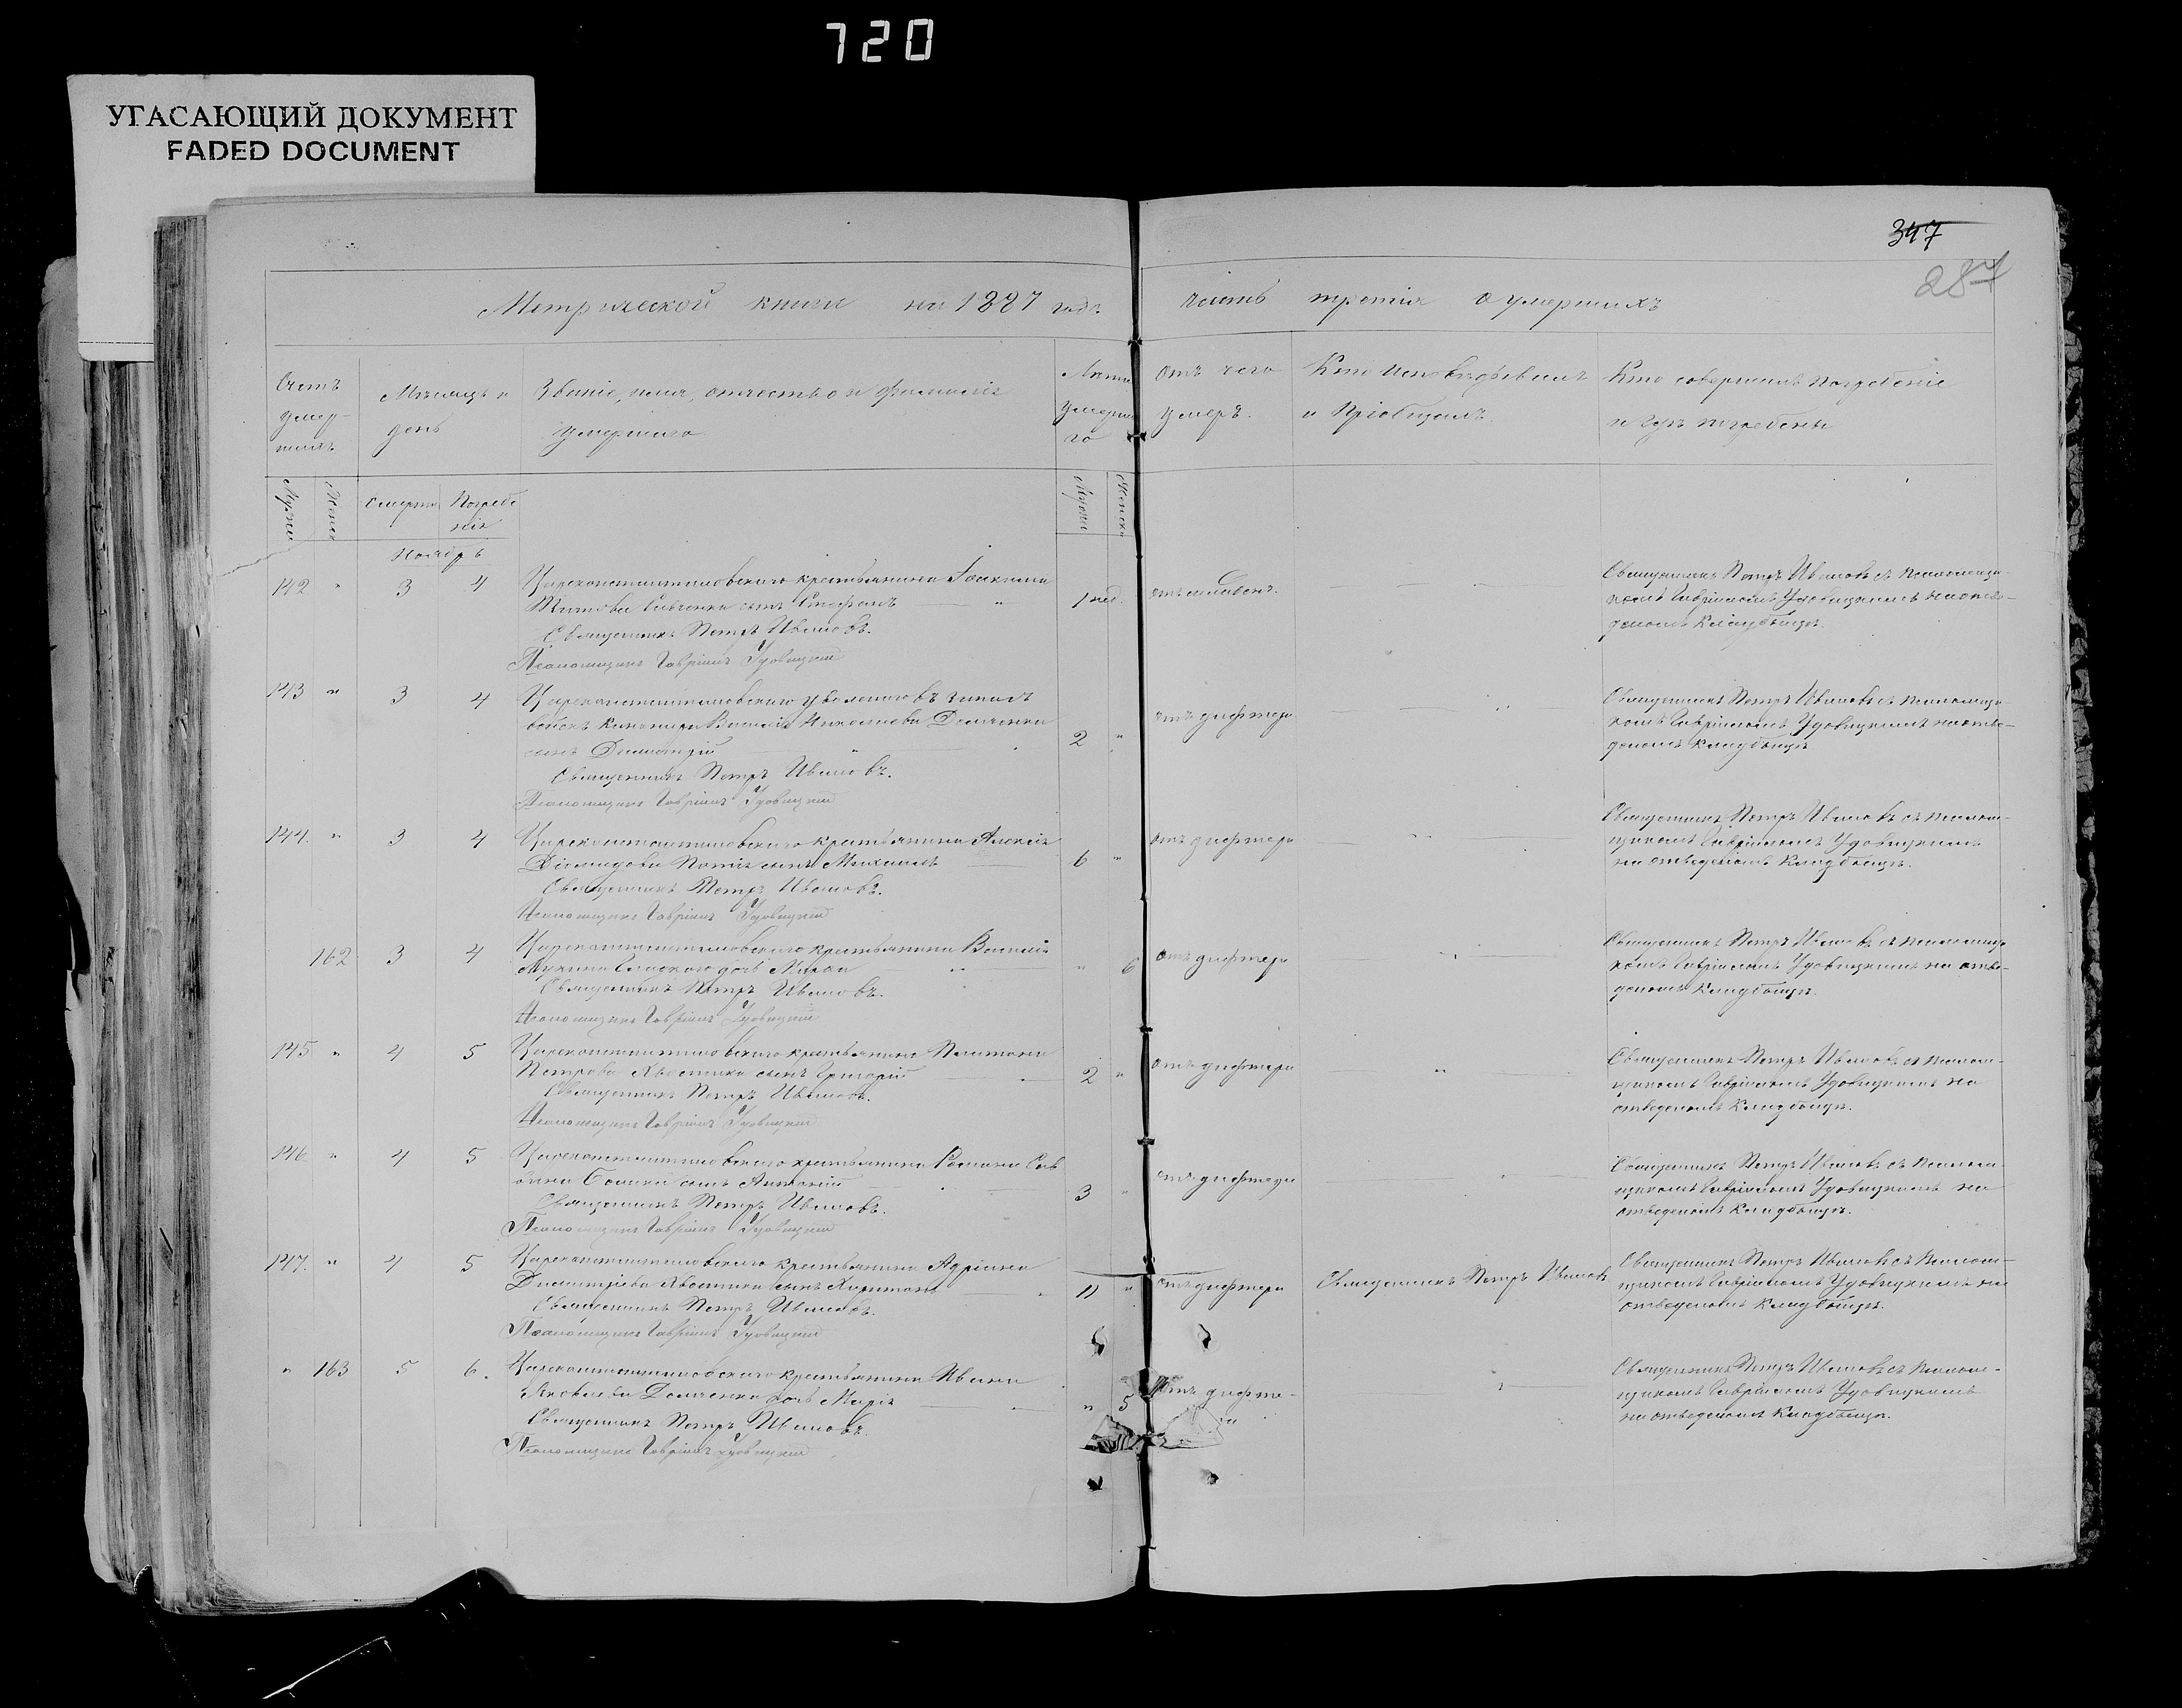 720
УГАСАЮЩИЙ ДОКУМЕНТ
FADED DOCUMENT
347
287
Метрической книги на 1887 годъ часть третія о умершихъ
Счетъ умер-шихъ
Мѣсяцъ и день
Званіе, имя, отчество и фамилія умершаго
Лѣта умерша го
отъ чего умеръ.
Кто исповѣдывалъ и пріобщалъ
Кто совершалъ погребеніе и гдѣ погребены
Мужск
Женск
Смерти
Погребе нія
Мужск
Женск
Ноябрь
142 " 3 4 Цареконстантиновскаго крестьянина Іоакима
Титова сынъ Стефанъ 1 нед.
Священникъ Петръ Ивановъ.
Псаломщикъ Гавріилъ Удовицкій
Священникъ Петръ Ивановъ съ псаломщи-
комъ Гавріиломъ Удовицкимъ на отве-
деномъ кладбищѣ.
143 " 3 4 Цареконстантиновскаго уволенаго въ запасъ
войскъ канонира Василія Николаева Демченка отъ дифтери
сынъ Димитрій 2 "
Священникъ Петръ Ивановъ.
Псаломщикъ Гавріилъ Удовицкій
Священникъ Петръ Ивановъ съ псаломщи-
комъ Гавріиломъ Удовицкимъ на отве-
деномъ кладбищѣ
144. " 3 4 Цареконстантиновскаго крестьянина Алексія отъ дифтери
Діомидова сынъ Михаилъ 6 "
Священникъ Петръ Ивановъ.
Псаломщикъ Гавріилъ Удовицкій
Священникъ Петръ Ивановъ съ псалом-
щикомъ Гавріиломъ Удовицкимъ
на отведеномъ кладбищѣ.
162 3 4 Цареконстантиновскаго крестьянина Василія отъ дифтери
Гладкого дочь " 6
Священникъ Петръ Ивановъ.
Псаломщикъ Гавріилъ Удовицкій
Священникъ Петръ Ивановъ съ псаломщи-
комъ Гавріиломъ Удовицкимъ на отве-
деномъ кладбищѣ.
145 " 4 5 Цареконстантиновскаго крестьянина Платона
Петрова Хвостика сынъ Григорій 2 " отъ дифтери
Священникъ Петръ Ивановъ.
Псаломщикъ Гавріилъ Удовицкій
Священникъ Петръ Ивановъ съ псалом-
щикомъ Гавріиломъ Удовицкимъ на
отведеномъ кладбищѣ.
146 " 4 5 Цареконстантиновскаго крестьянина Романа Сав
сынъ Антоній 3 " отъ дифтери
Священникъ Петръ Ивановъ.
Псаломщикъ Гавріилъ Удовицкій
Священникъ Петръ Ивановъ съ псалом-
щикомъ Гавріиломъ Удовицкимъ на
отведеномъ кладбищѣ.
147. " 4 5 Цареконстантиновскаго крестьянина Адріана
Димитріева Хвостика сынъ Харитонъ 11 " отъ дифтери Священникъ Петръ Ивановъ
Священникъ Петръ Ивановъ.
Псаломщикъ Гавріилъ Удовицкій
Священникъ Петръ Ивановъ съ псалом-
щикомъ Гавріиломъ Удовицкимъ на
отведеномъ кладбищѣ.
" 163 5 6. Цареконстантиновскаго крестьянина Ивана
Яковлева Демченка дочь Марія " 5 отъ дифте-
Священникъ Петръ Ивановъ.
Псаломщикъ Гавріилъ Удовицкій
Священникъ Петръ Ивановъ съ псалом-
щикомъ Гавріиломъ Удовицкимъ
на отведеномъ кладбищѣ.